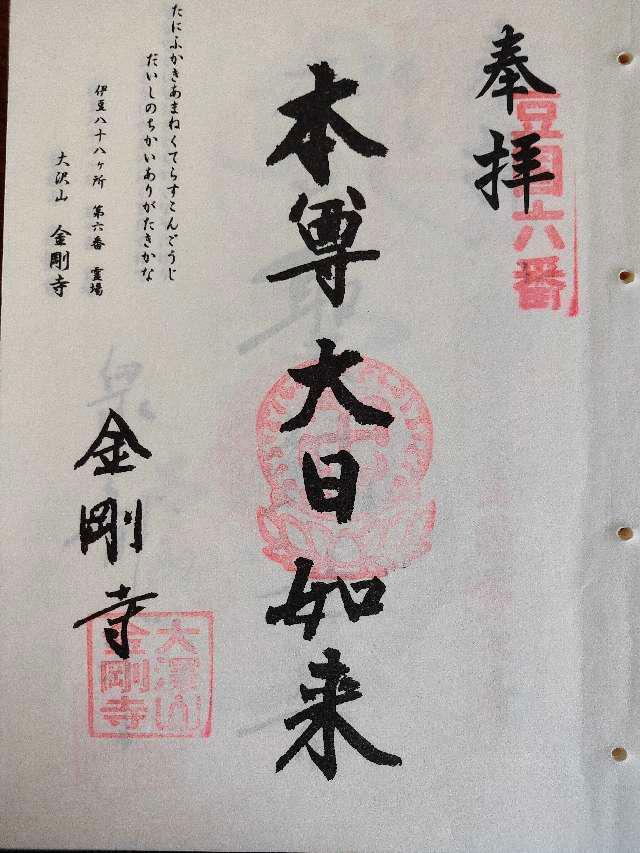 奉拝
豆国六番
本尊大日如来
たにふかきあまねくてらすこんごうじ
だいしのちかいありがたきかな
伊豆八十八ヶ所 第六番 霊場
大沢山 金剛寺
金剛寺
大澤山
金剛寺